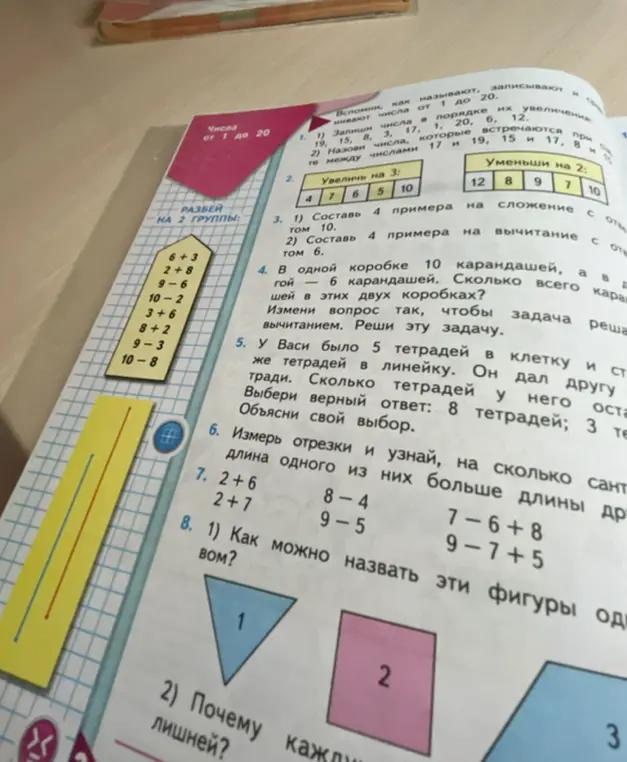 Числа
от 1 до 20
Вспомни, как называют, записывают и
нивают числа от 1 до 20.
1. 1) Запиши числа в порядке их увеличения:
19, 15, 8, 3, 17, 1, 20, 6, 12.
2) Назови числа, которые встречаются при
те между числами 17 и 19, 15 и 17, 8 и
2. Увеличь на 3:
4 7 6 5 10
Уменьши на 2:
12 8 9 7 10
3. 1) Составь 4 примера на сложение с
том 10.
2) Составь 4 примера на вычитание с
том 6.
4. В одной коробке 10 карандашей, а в
гой — 6 карандашей. Сколько всего кара
шей в этих двух коробках?
Измени вопрос так, чтобы задача реша
вычитанием. Реши эту задачу.
5. У Васи было 5 тетрадей в клетку и ст
же тетрадей в линейку. Он дал другу
тради. Сколько тетрадей у него оста
Выбери верный ответ: 8 тетрадей; 3 те
Объясни свой выбор.
6. Измерь отрезки и узнай, на сколько сант
длина одного из них больше длины др
7. 2 + 6 8 − 4 7 − 6 + 8
2 + 7 9 − 5 9 − 7 + 5
8. 1) Как можно назвать эти фигуры од
вом?
1
2
3
2) Почему кажду
лишней?
РАЗБЕЙ
НА 2 ГРУППЫ:
6 + 3
2 + 8
9 − 6
10 − 2
3 + 6
8 + 2
9 − 3
10 − 8